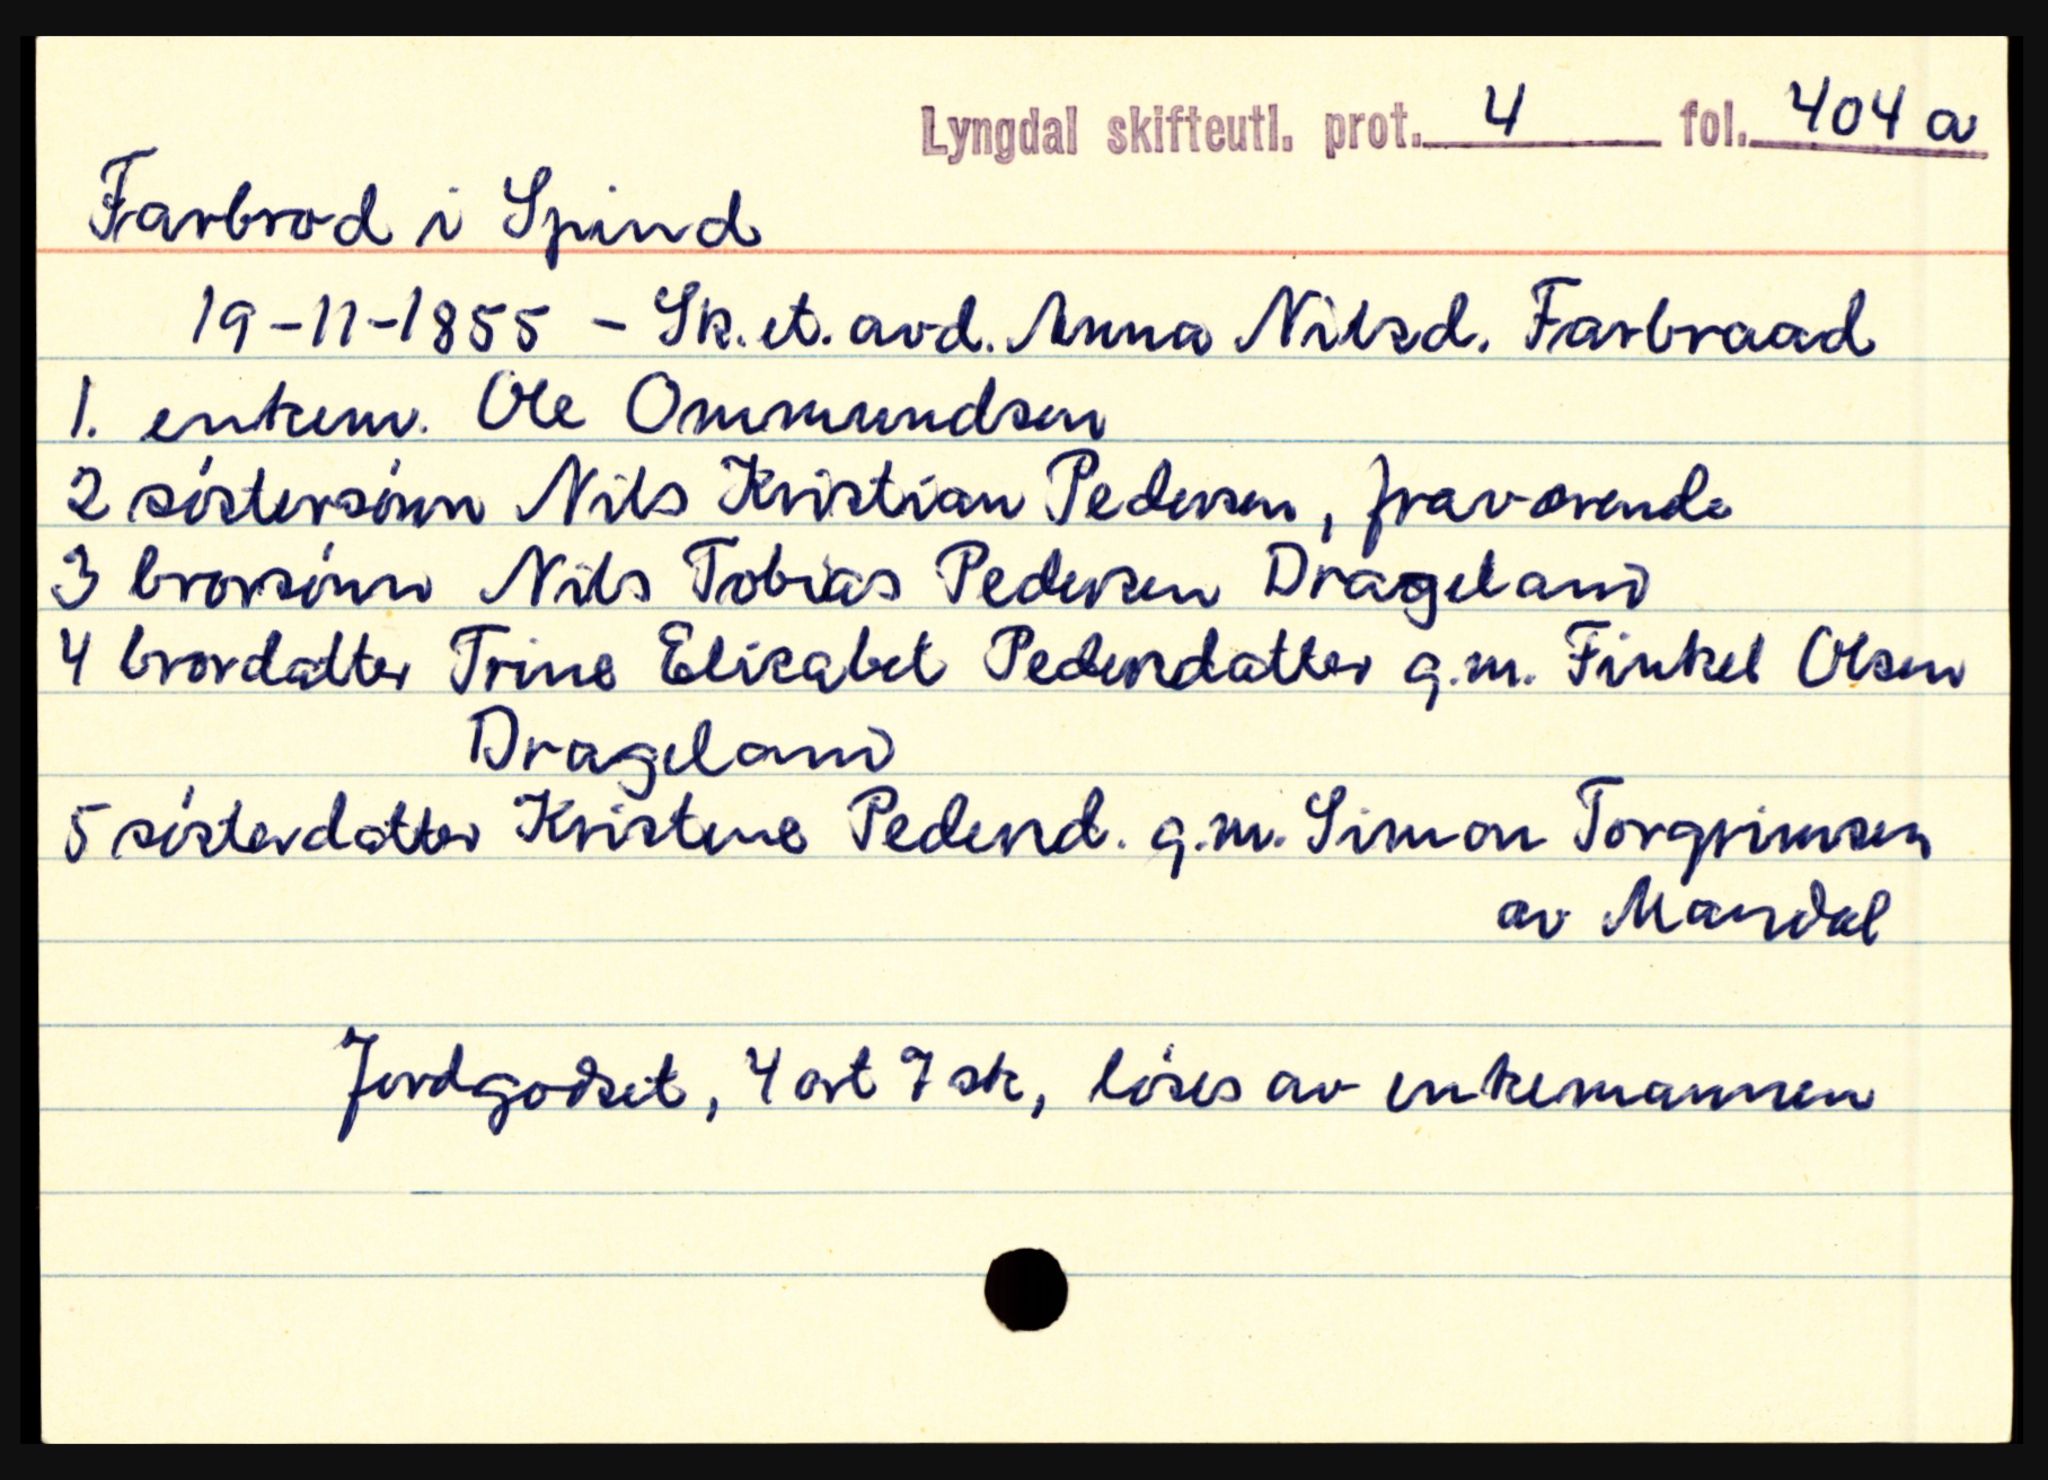 Lyngdal skifteutl. prot. 4 fol. 404 a
Farbrod i Spind
19-11-1855 - Sk. et. avd. Anna Nilsd. Farbraad
1. enkem. Ole Ommundsen
2 søstersønn Nils Kristian Pedersen, fraværende
3 brorsønn Nils Tobias Pedersen Drageland
4 brordatter Trine Elisabet Pedersdatter g.m. Finkel Olsen
Drageland
5 søsterdatter Kristene Pedersd. g.m. Simon Torgrimsen
av Mandal
Jordgodset, 4 ort 7 sk, løses av enkemannen